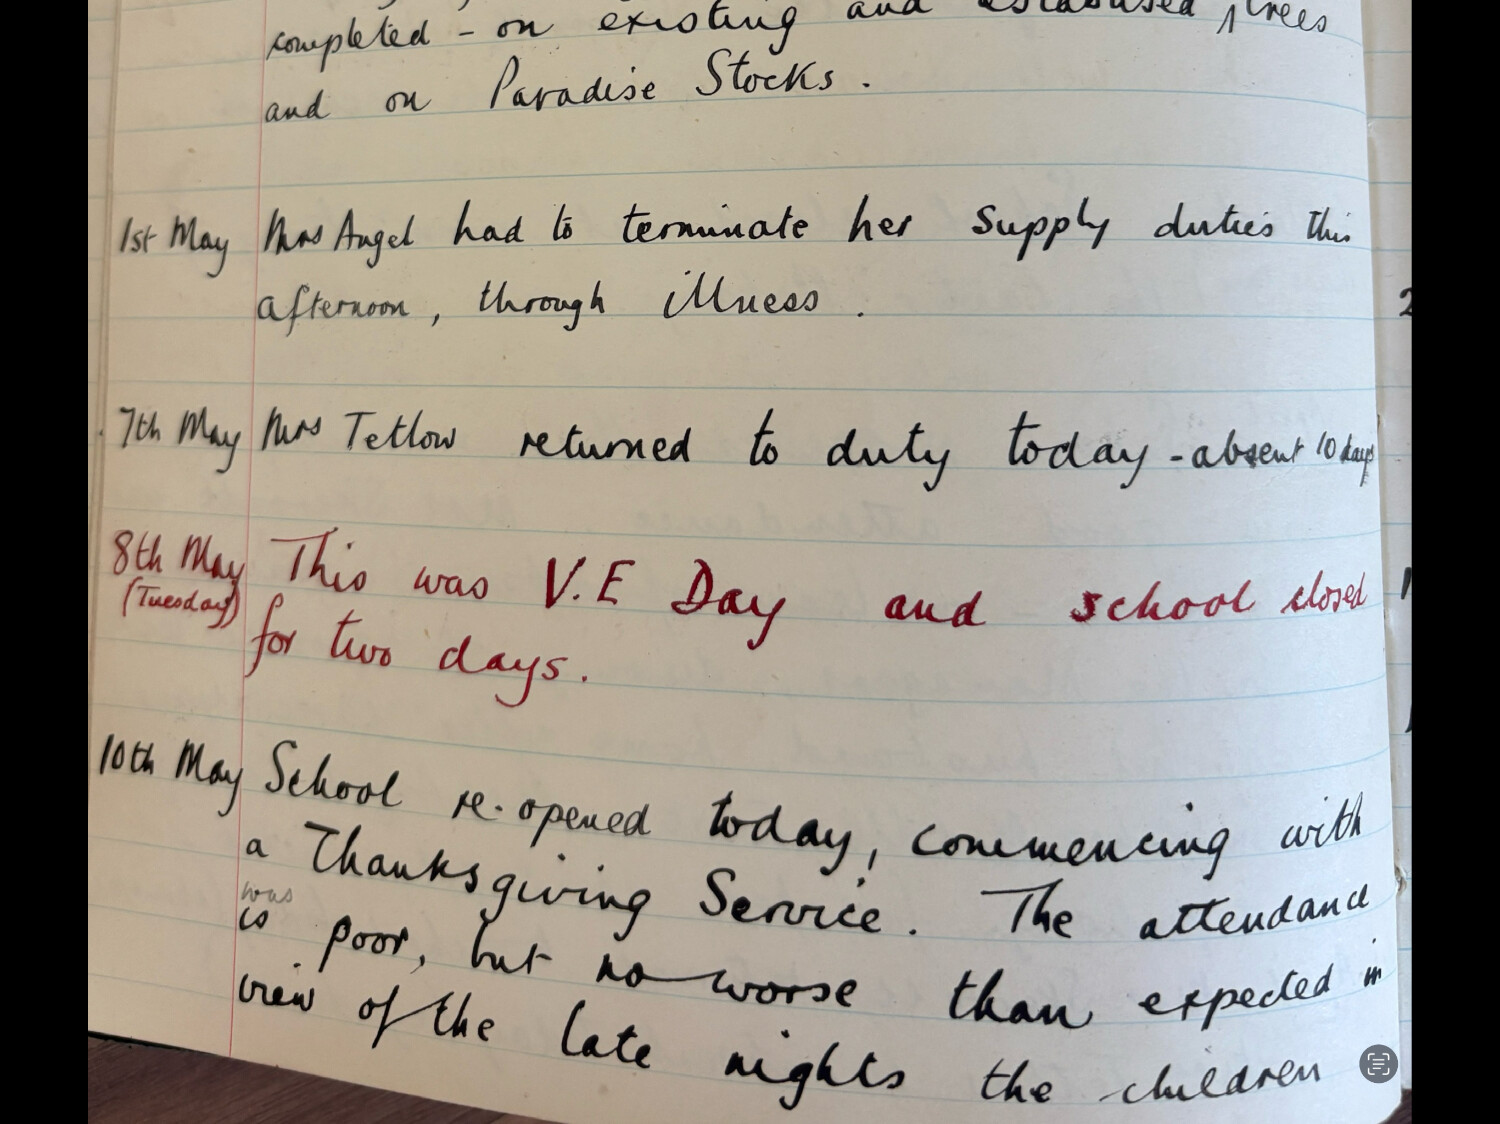 completed - on existing and established trees
and on Paradise Stocks.
1st May Mrs Angel had to terminate her supply duties this
afternoon, through illness.
7th May Mrs Tetlow returned to duty today - absent 10 days
8th May This was V.E Day and school closed
(Tuesday)
for two days.
10th May School re-opened today, commencing with
a Thanksgiving Service. The attendance
was
is poor, but no worse than expected in
view of the late nights the children